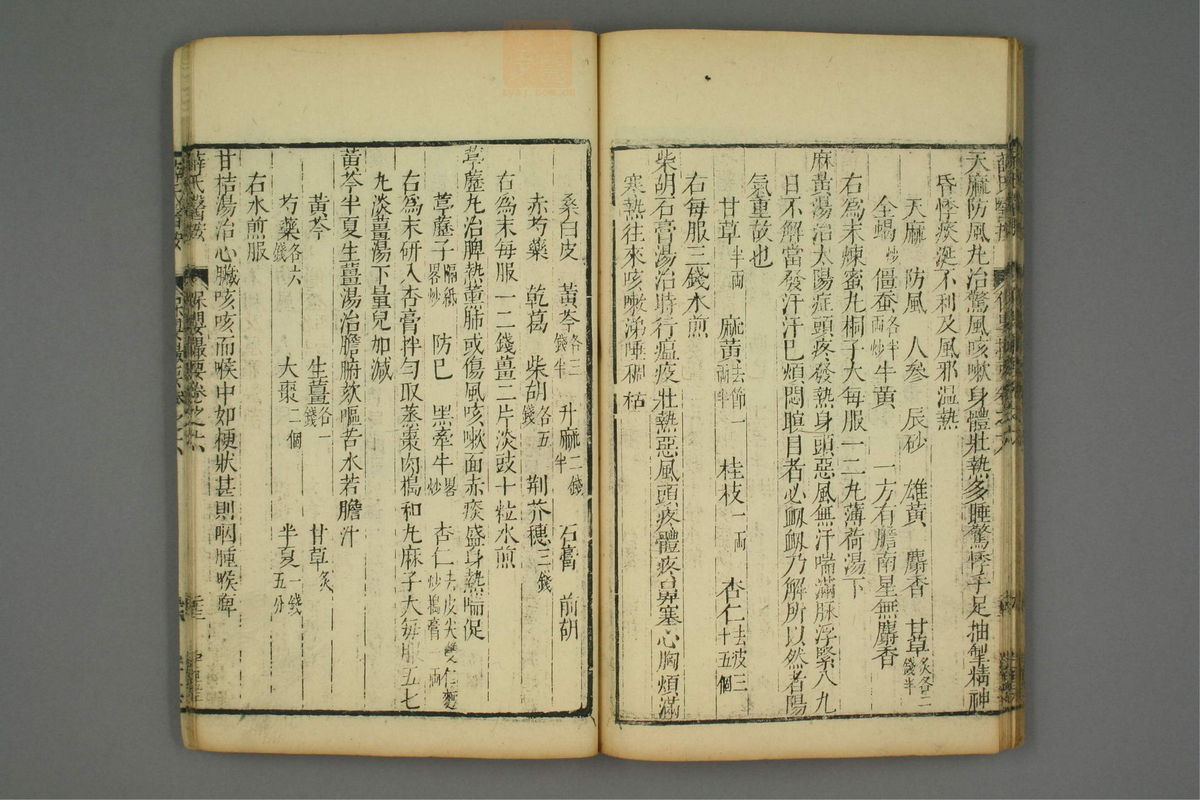 天麻防風丸治驚風咳嗽身體壯熱多睡驚悸手足抽掣精神
昏悸痰涎不利及風邪温熱
天麻 防風 人參 辰砂 雄黃 麝香 甘草炙各二錢半
全蝎炒 僵蚕各半兩炒 牛黃 一方有膽南星無麝香
右為末煉蜜丸桐子大每服一二丸薄荷湯下
麻黃湯治太陽症頭疼發熱身頭惡風無汗喘滿脉浮緊八九
日不解當發汗汗已煩悶瞋目者必衂衂乃解所以然者陽
氣重故也
甘草半兩 麻黃去節一兩半 桂枝一兩 杏仁去皮三十五個
右每服三錢水煎
柴胡石膏湯治時行瘟疫壯熱惡風頭疼體疼鼻塞心胸煩滿
寒熱往來咳嗽涕唾稠枯
桑白皮 黃芩各三錢半 升麻二錢半 石膏 前胡
赤芍藥 乾葛 柴胡各五錢 荆芥穗三錢
右為末每服一二錢薑二片淡豉十粒水煎
葶藶丸治脾熱薰肺或傷風咳嗽面赤痰盛身熱喘促
葶藶子隔紙畧炒 防已 黑牽牛畧炒 杏仁去皮尖雙仁麥炒搗膏一兩
右為末研入杏膏拌勻取蒸棗肉搗和丸麻子大每服五七
丸淡薑湯下量兒加減
黃芩半夏生薑湯治膽腑欬嘔苦水若膽汁
黃芩 生薑各一錢 甘草炙
芍藥各六錢 大棗二個 半夏一錢五分
右水煎服
甘桔湯治心臟咳咳而喉中如梗狀甚則咽腫喉痺
薛氏醫按 保嬰撮要卷之六